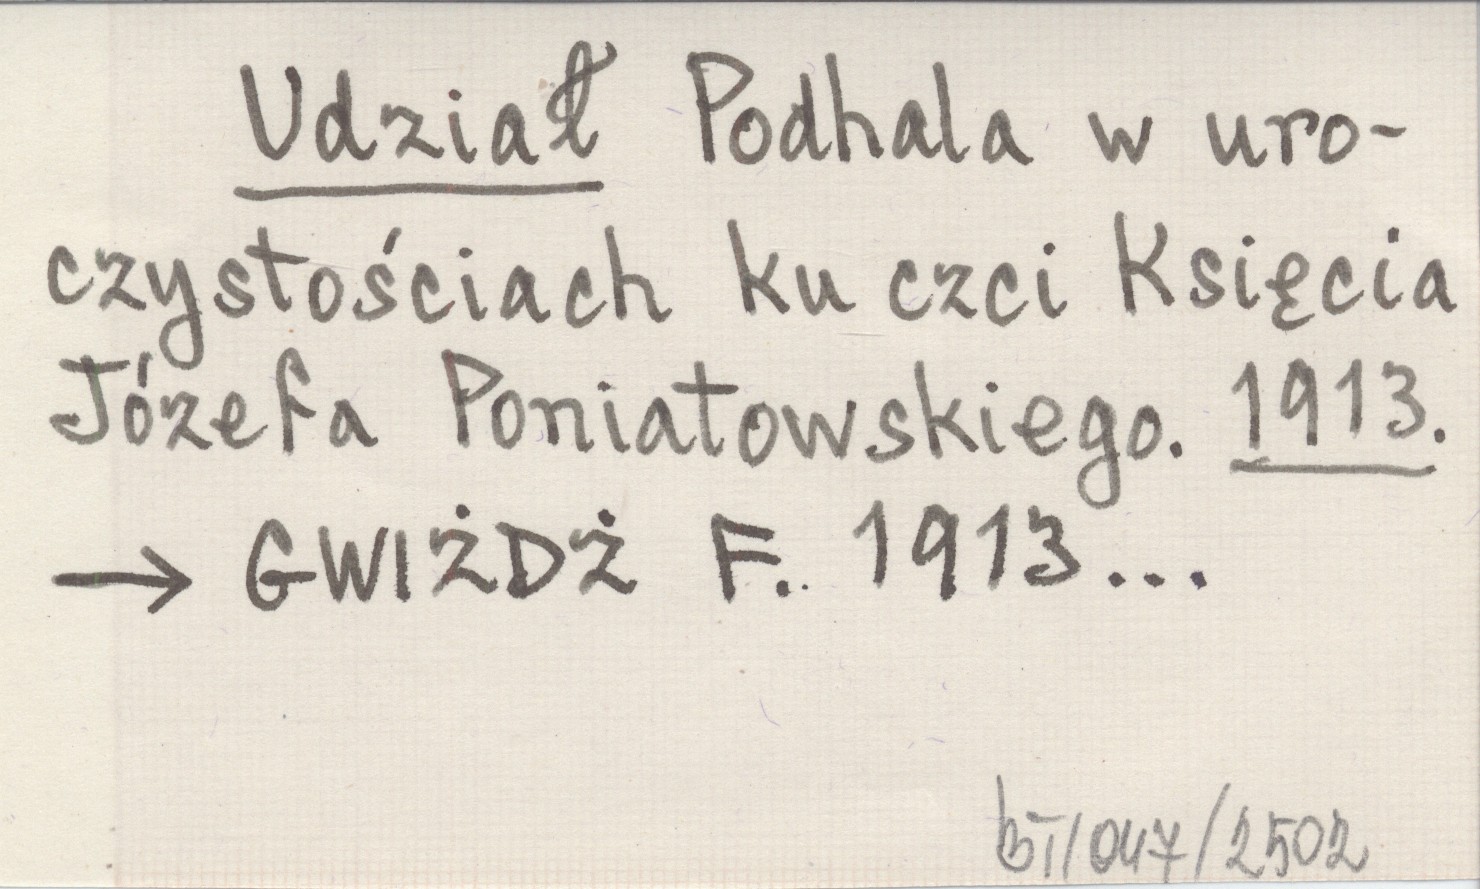 Udział Podhala w uro-
czystościach ku czci Księcia
Józefa Poniatowskiego. 1913.
→ GWIŻDŻ F. 1913...
BT/047/2502